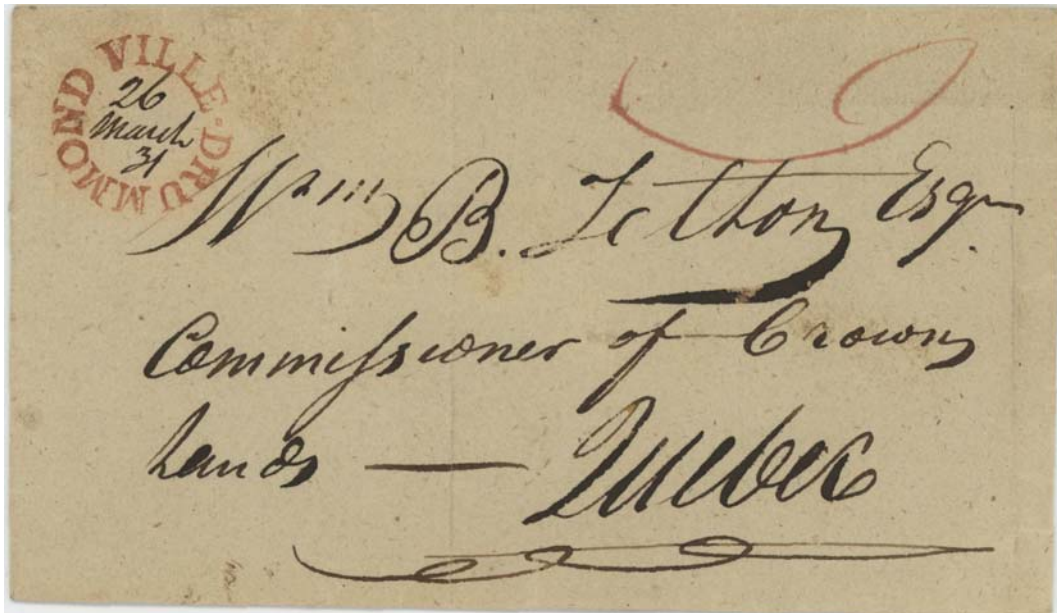 DRUMMOND VILLE
26
March
31
Wm B. Felton Esqr
Commiſsioner of Crown
Lands — Quebec